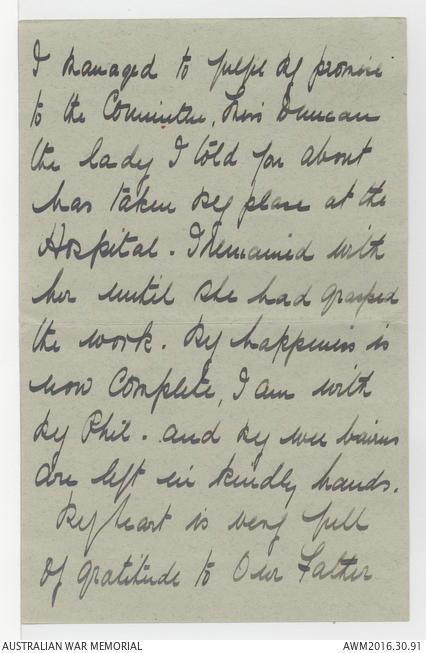 I managed to fulfil my promise
to the Committee, Miss Duncan
the lady I told you about
has taken my place at the
Hospital. I remained with
her until she had grasped
the work. My happiness is
now complete, I am with
my Phil. and my wee bairns
are left in kindly hands.
My heart is very full
of gratitude to Our Father
AUSTRALIAN WAR MEMORIAL
AWM2016.30.91